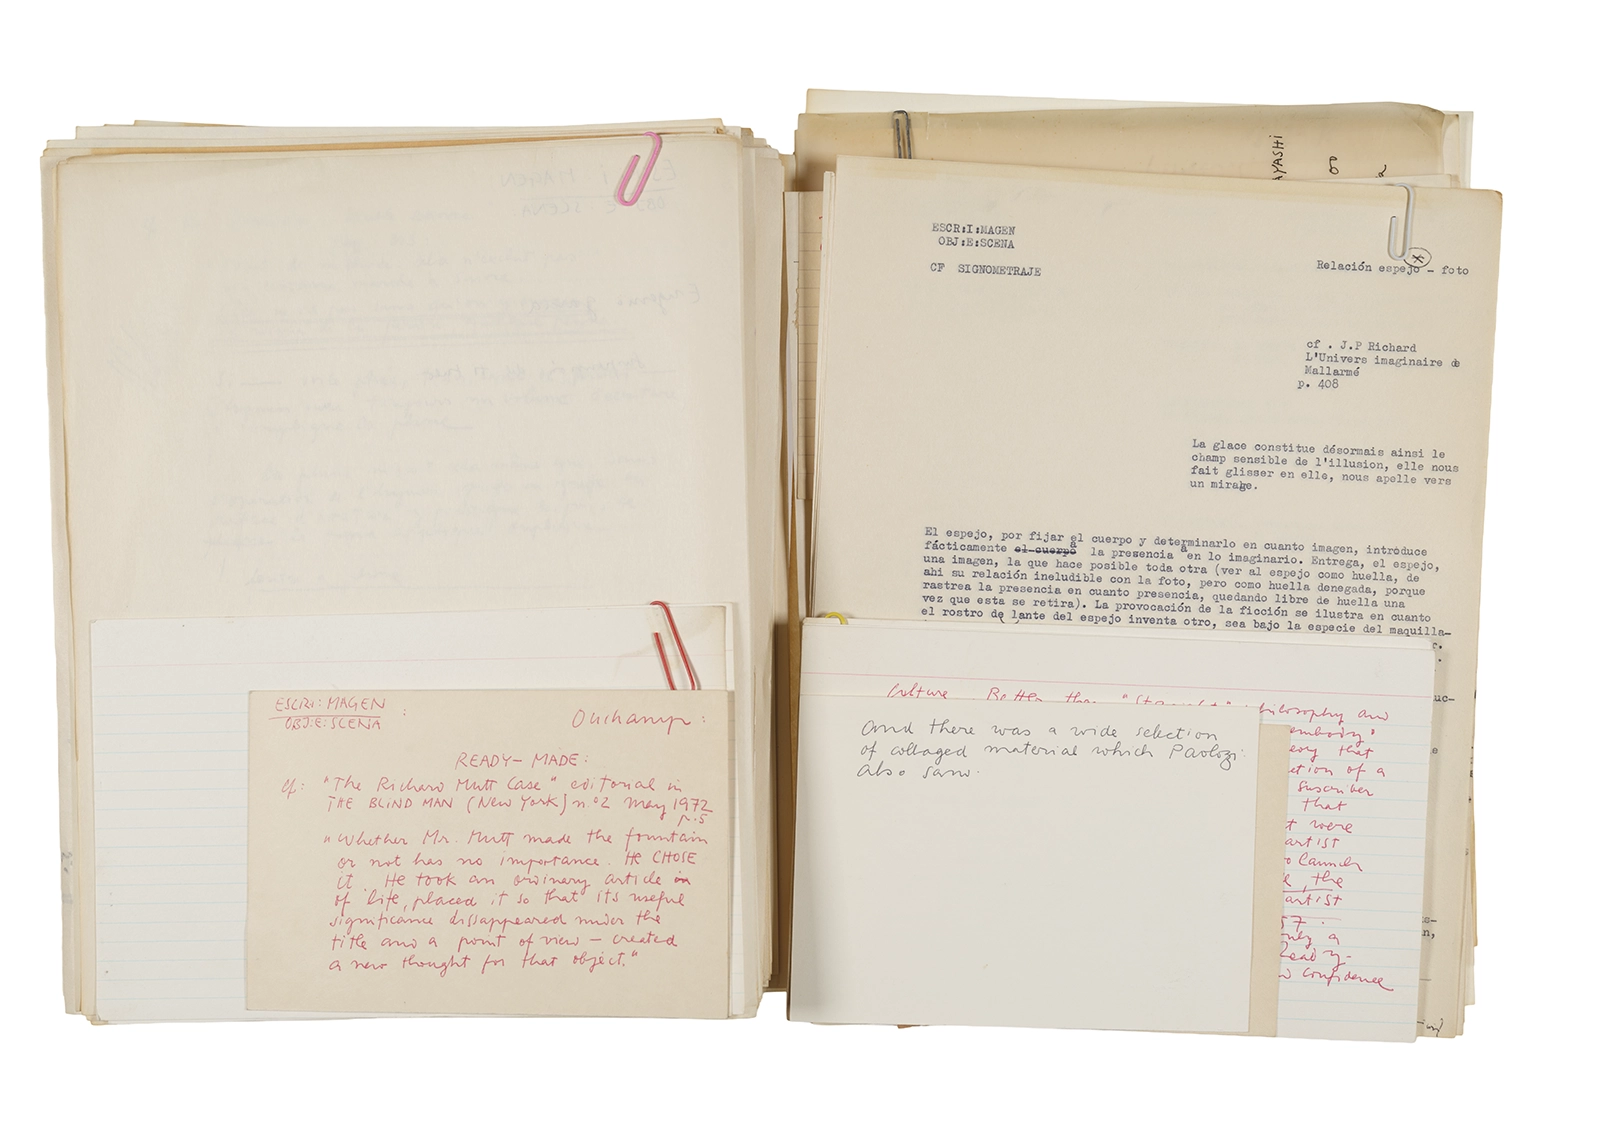 ESCRI:MAGEN
OBJ:E:SCENA :
Duchamp:
READY-MADE:
cf: "The Richard Mutt Case" editorial in
THE BLIND MAN (New York) n.º2 May 1972
p.5
"Whether Mr. Mutt made the fountain
or not has no importance. HE CHOSE
it. He took an ordinary article in
of life, placed it so that its useful
significance disappeared under the
title and a point of view – created
a new thought for that object."
AYASHI
8
ESCR:I:MAGEN
OBJ:E:SCENA
CF SIGNOMETRAJE
Relación espejo - foto
cf . J.P Richard
L'Univers imaginaire de
Mallarmé
p. 408
La glace constitue désormais ainsi le
champ sensible de l'illusion, elle nous
fait glisser en elle, nous apelle vers
un mirage.
El espejo, por fijar el cuerpo y determinarlo en cuanto imagen, introduce
fácticamente el cuerpo a la presencia a en lo imaginario. Entrega, el espejo,
una imagen, la que hace posible toda otra (ver al espejo como huella, de
ahi su relación ineludible con la foto, pero como huella denegada, porque
rastrea la presencia en cuanto presencia, quedando libre de huella una
vez que esta se retira). La provocación de la ficción se ilustra en cuanto
el rostro de lante del espejo inventa otro, sea bajo la especie del maquilla-
uc-
Culture Better than "Straight" philosophy and
"embody"
eory that
ction of a
Suscriber
that
t were
artist
o launch
, the
artist
57.
only a
Ready-
confidence
And there was a wide selection
of collaged material which Paolozzi
also saw.